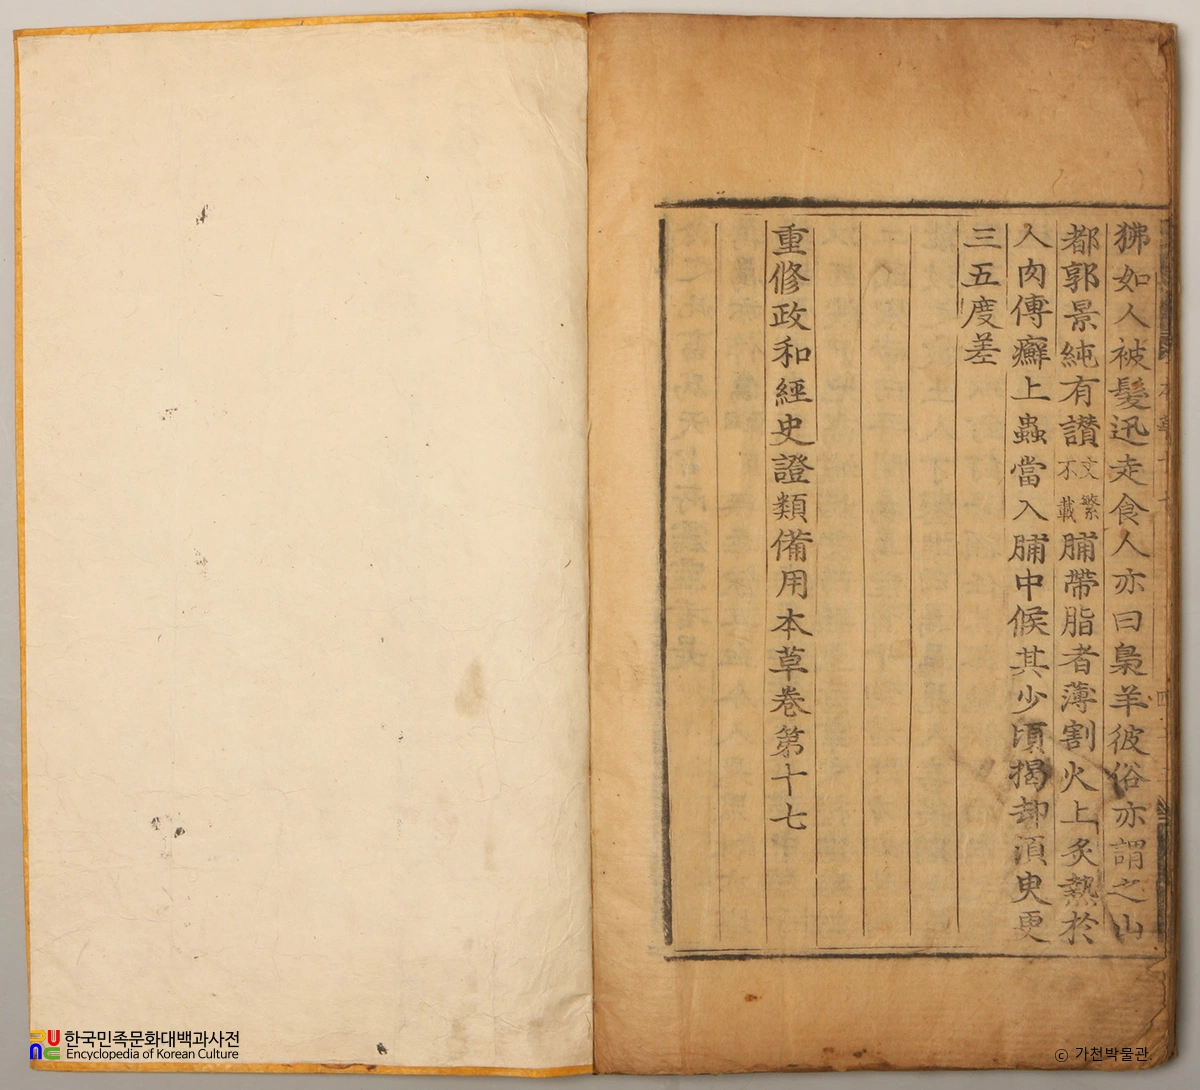 狒如人被髮迅走食人亦曰梟羊彼俗亦謂之山
都郭景純有讃文繁不載脯帶脂者薄割火上炙熱於
人肉傅癬上蟲當入脯中候其少頃揭却須臾更
三五度差
重修政和經史證類備用本草卷第十七
한국민족문화대백과사전
Encyclopedia of Korean Culture
© 가천박물관.